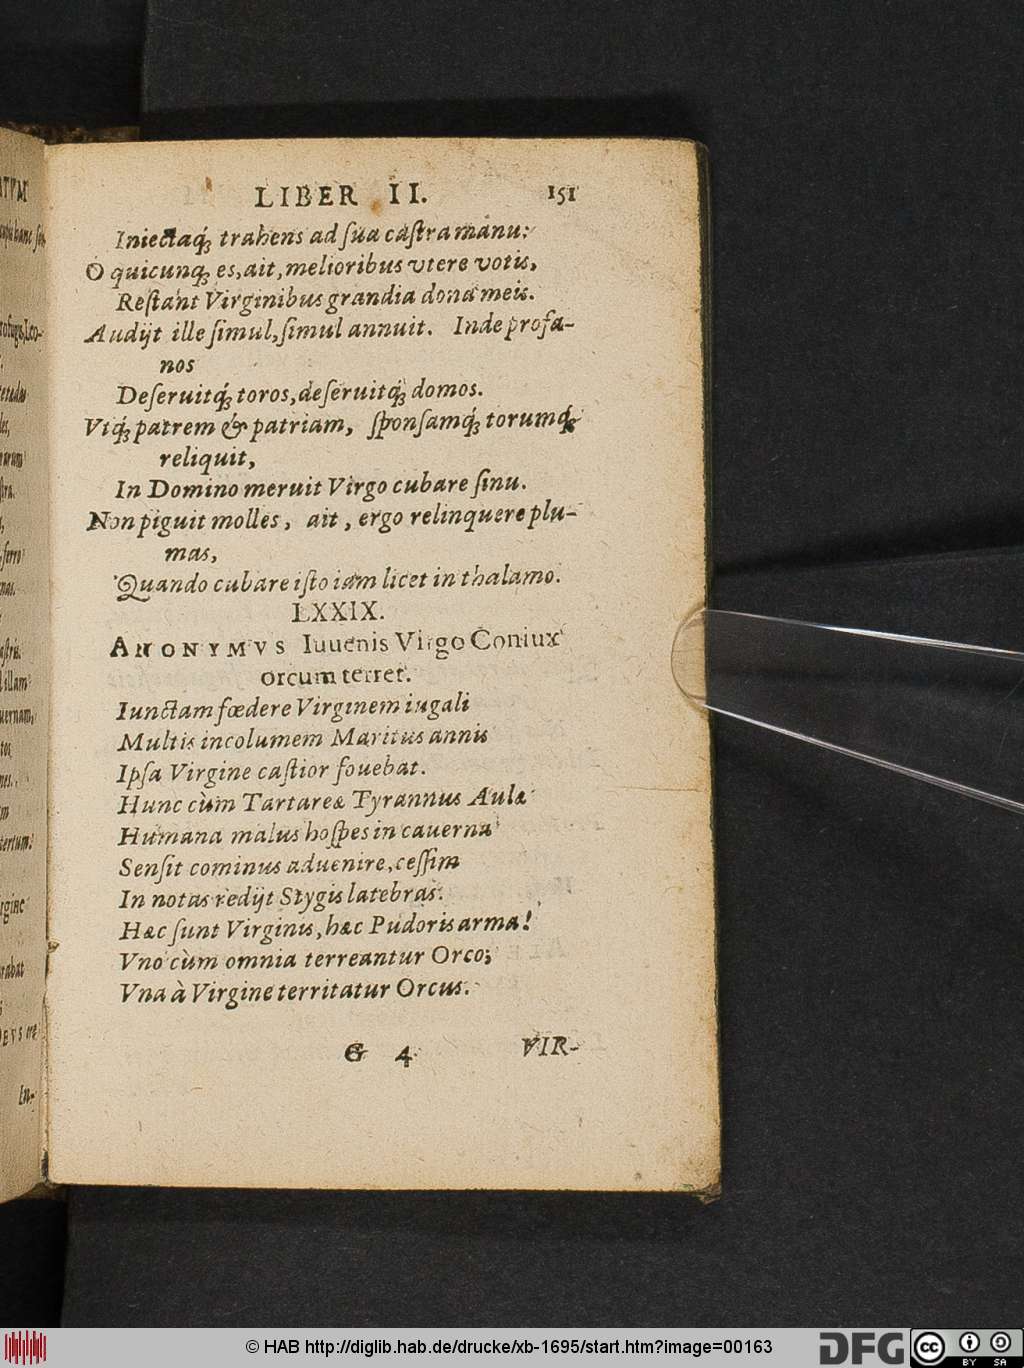 LIBER II. 151
Iniectaq́; trahens ad ſua caſtra manu:
O quicunq; es, ait, melioribus vtere votis,
Reſtant Virginibus grandia dona meis.
Audijt ille ſimul, ſimul annuit. Inde profa-
nos
Deſeruitq́; toros, deſeruitq́; domos.
Vtq́; patrem & patriam, ſponſamq́; torumq́;
reliquit,
In Domino meruit Virgo cubare ſinu.
Non piguit molles, ait, ergo relinquere plu-
mas,
Quando cubare iſto iam licet in thalamo.
LXXIX.
ANONYMVS Iuuenis Virgo Coniux
orcum terret.
Iunctam fœdere Virginem iugali
Multis incolumem Maritus annis
Ipſa Virgine caſtior fouebat.
Hunc cùm Tartareæ Tyrannus Aulæ
Humana malus hoſpes in cauerna
Senſit cominus aduenire, ceſſim
In notas redijt Stygis latebras.
Hæc ſunt Virginis, hæc Pudoris arma!
Vno cùm omnia terreantur Orco;
Vna à Virgine territatur Orcus.
G 4 VIR-
© HAB http://diglib.hab.de/drucke/xb-1695/start.htm?image=00163
DFG
cc BY SA